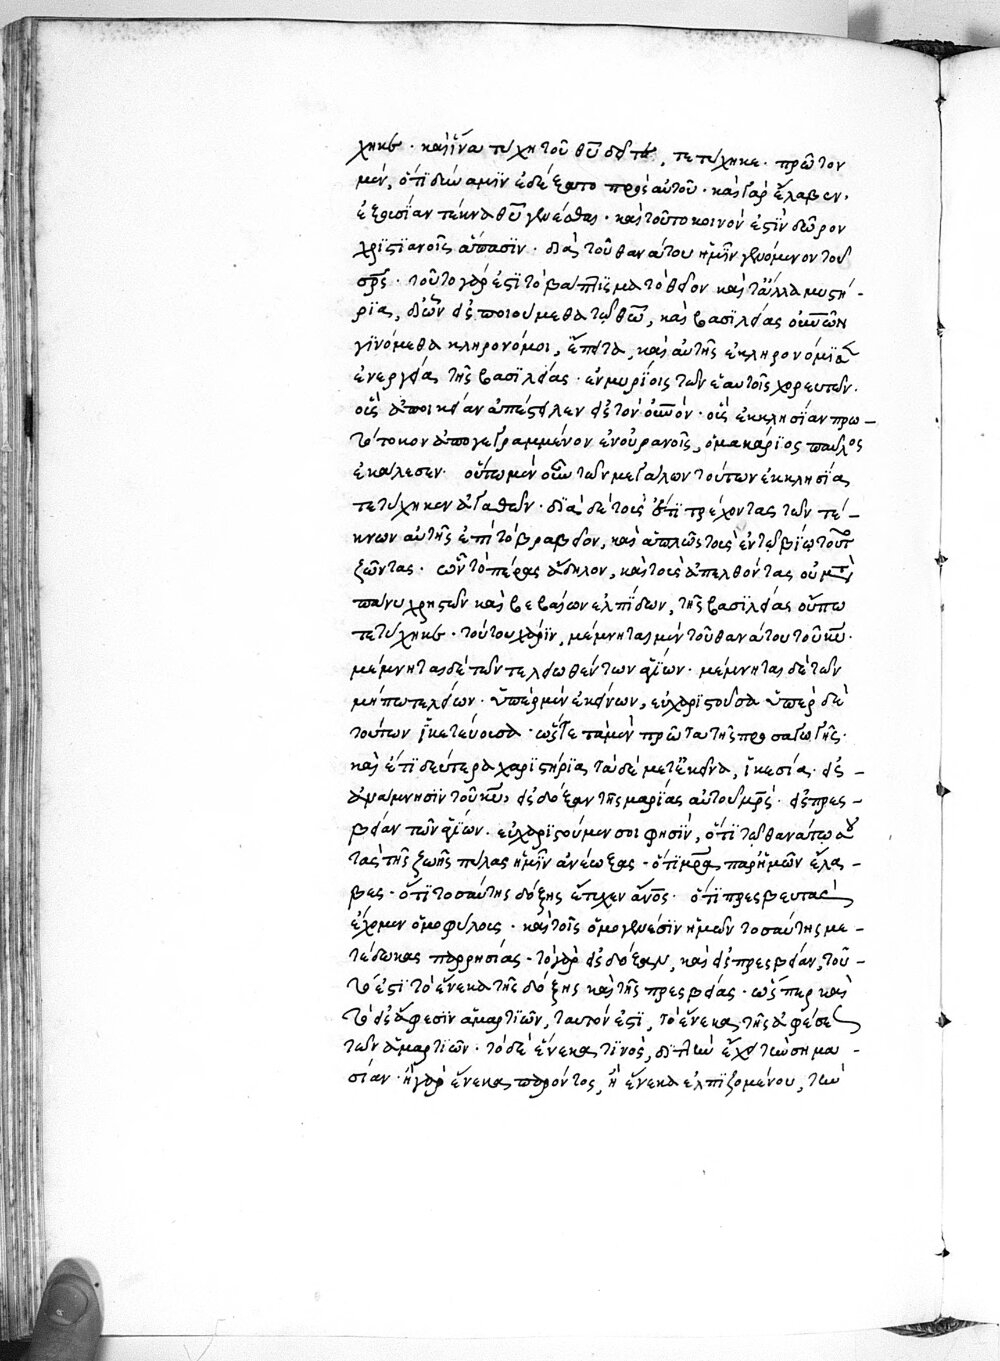 χηκε · καὶ ἵνα τύχη τοῦ θῦ δεῖται, τετύχηκε · πρῶτον
μὲν, ὅτι δύναμιν ἐδέξατο πρὸς αὐτοῦ · καὶ γὰρ ἔλαβεν,
ἐξουσίαν τέκνα θῦ γενέσθαι · καὶ τοῦτο κοινὸν ἐστὶν δῶρον
χριστιανοῖς ἅπασιν · διὰ τοῦ θανάτου ἡμῖν γενόμενον τοῦ
σρς · τοῦτο γάρ ἐστι τὸ βάπτισμα τὸ θεῖον καὶ τἄλλα μυστή-
ρια, δι' ὧν εἰσποιούμεθα τῷ θῶ, καὶ βασιλείας οὐνῶν
γινόμεθα κληρονόμοι, ἔπειτα, καὶ αὐτῆς ἐκληρονόμησεν
ἐνεργείας τῆς βασιλείας · ἐν μυρίοις τῶν ἑαυτοῖς χορευτῶν ·
οὓς ἀποικίαν ἀπέστειλεν εἰς τὸν οὐνόν · οὓς ἐκκλησίαν πρω-
τότοκον ἀπογεγραμμένον ἐν οὐρανοῖς, ὁ μακάριος παῦλος
ἐκάλεσεν · οὕτω μὲν οὖν τῶν μεγάλων τούτων ἐκκλησία
τετύχηκεν ἀγαθῶν · διὰ δὲ τοὺς ἔτι τρέχοντας τῶν τέ-
κνων αὐτῆς ἐπὶ τὸ βραβεῖον, καὶ ἁπλῶς τοὺς ἐν τῷ βίῳ τούτῳ
ζῶντας · ὧν τὸ πέρας ἄδηλον, καὶ τοὺς ἀπελθόντας οὐ μετὰ
πάνυ χρηστῶν καὶ βεβαίων ἐλπίδων, τῆς βασιλείας οὔπω
τετύχηκε · τούτου χάριν, μέμνηται μὲν τοῦ θανάτου τοῦ κυ ·
μέμνηται δὲ τῶν τελειωθέντων ἁγίων · μέμνηται δὲ τῶν
μήπω τελείων · ὑπὲρ μὲν ἐκείνων, εὐχαριστοῦσα ὑπὲρ δὲ
τούτων ἱκετεύουσα · ὥστε τὰ μὲν πρῶτα τῆς προσαγωγῆς ·
καὶ ἔτι δεύτερα χαριστήρια τὰ δὲ μετ' ἐκεῖνα, ἱκεσία · εἰς
ἀνάμνησιν τοῦ κυ, εἰς δόξαν τῆς μαρίας αὐτοῦ μρς · εἰς πρεσ-
βείαν τῶν ἁγίων · εὐχαριστοῦμεν σοι φησὶν, ὅτι τῷ θανάτῳ σου
τὰς τῆς ζωῆς πύλας ἡμῖν ἀνέῳξας · ὅτι μρα παρ' ἡμῶν ἔλα-
βες · ὅτι τοσαύτης δόξης ἔτυχεν ἄνος · ὅτι πρεσβευτὰς
ἔχομεν ὁμοφύλους · καὶ τοῖς ὁμογενέσιν ἡμῶν τοσαύτης με-
τέδωκας παρρησίας · τὸ γὰρ εἰς δόξαν, καὶ εἰς πρεσβείαν, τοῦ-
τό ἐστι τὸ ἕνεκα τῆς δόξης καὶ τῆς πρεσβείας · ὥσπερ καὶ
τὸ εἰς ἄφεσιν ἁμαρτιῶν, ταυτόν ἐστι, τὸ ἕνεκα τῆς ἀφέσεως
τῶν ἁμαρτιῶν · τὸ δὲ ἕνεκα τινὸς, διπλῆν ἔχει τὴν σημα-
σίαν · ἢ γὰρ ἕνεκα παρόντος, ἢ ἕνεκα ἐλπιζομένου, τὴν